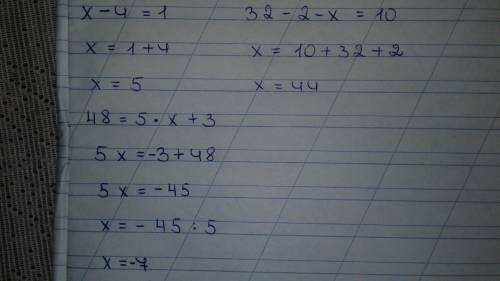 x - 4 = 1
x = 1 + 4
x = 5
48 = 5 · x + 3
5x = -3 + 48
5x = -45
x = - 45 : 5
x = -7
32 - 2 - x = 10
x = 10 + 32 + 2
x = 44